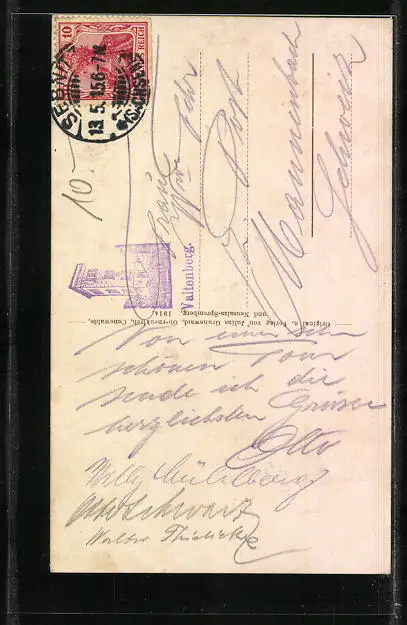 10
REICH
SEBNITZ
13.5.15.6-7N.
(SACHSEN)
10.-
Fräul.
Post
Mannenbach
Schweiz
Valtenberg.
Original u. Verlag von Julius Grunewald, Oberneukirch, Cunewalde,
und Neusalza-Spremberg. 1914.
Von einer sehr
schönen Tour
sende ich die
herzlichsten Grüsse
Otto
Willy Mühlberg
Otto Schwarz
Walter